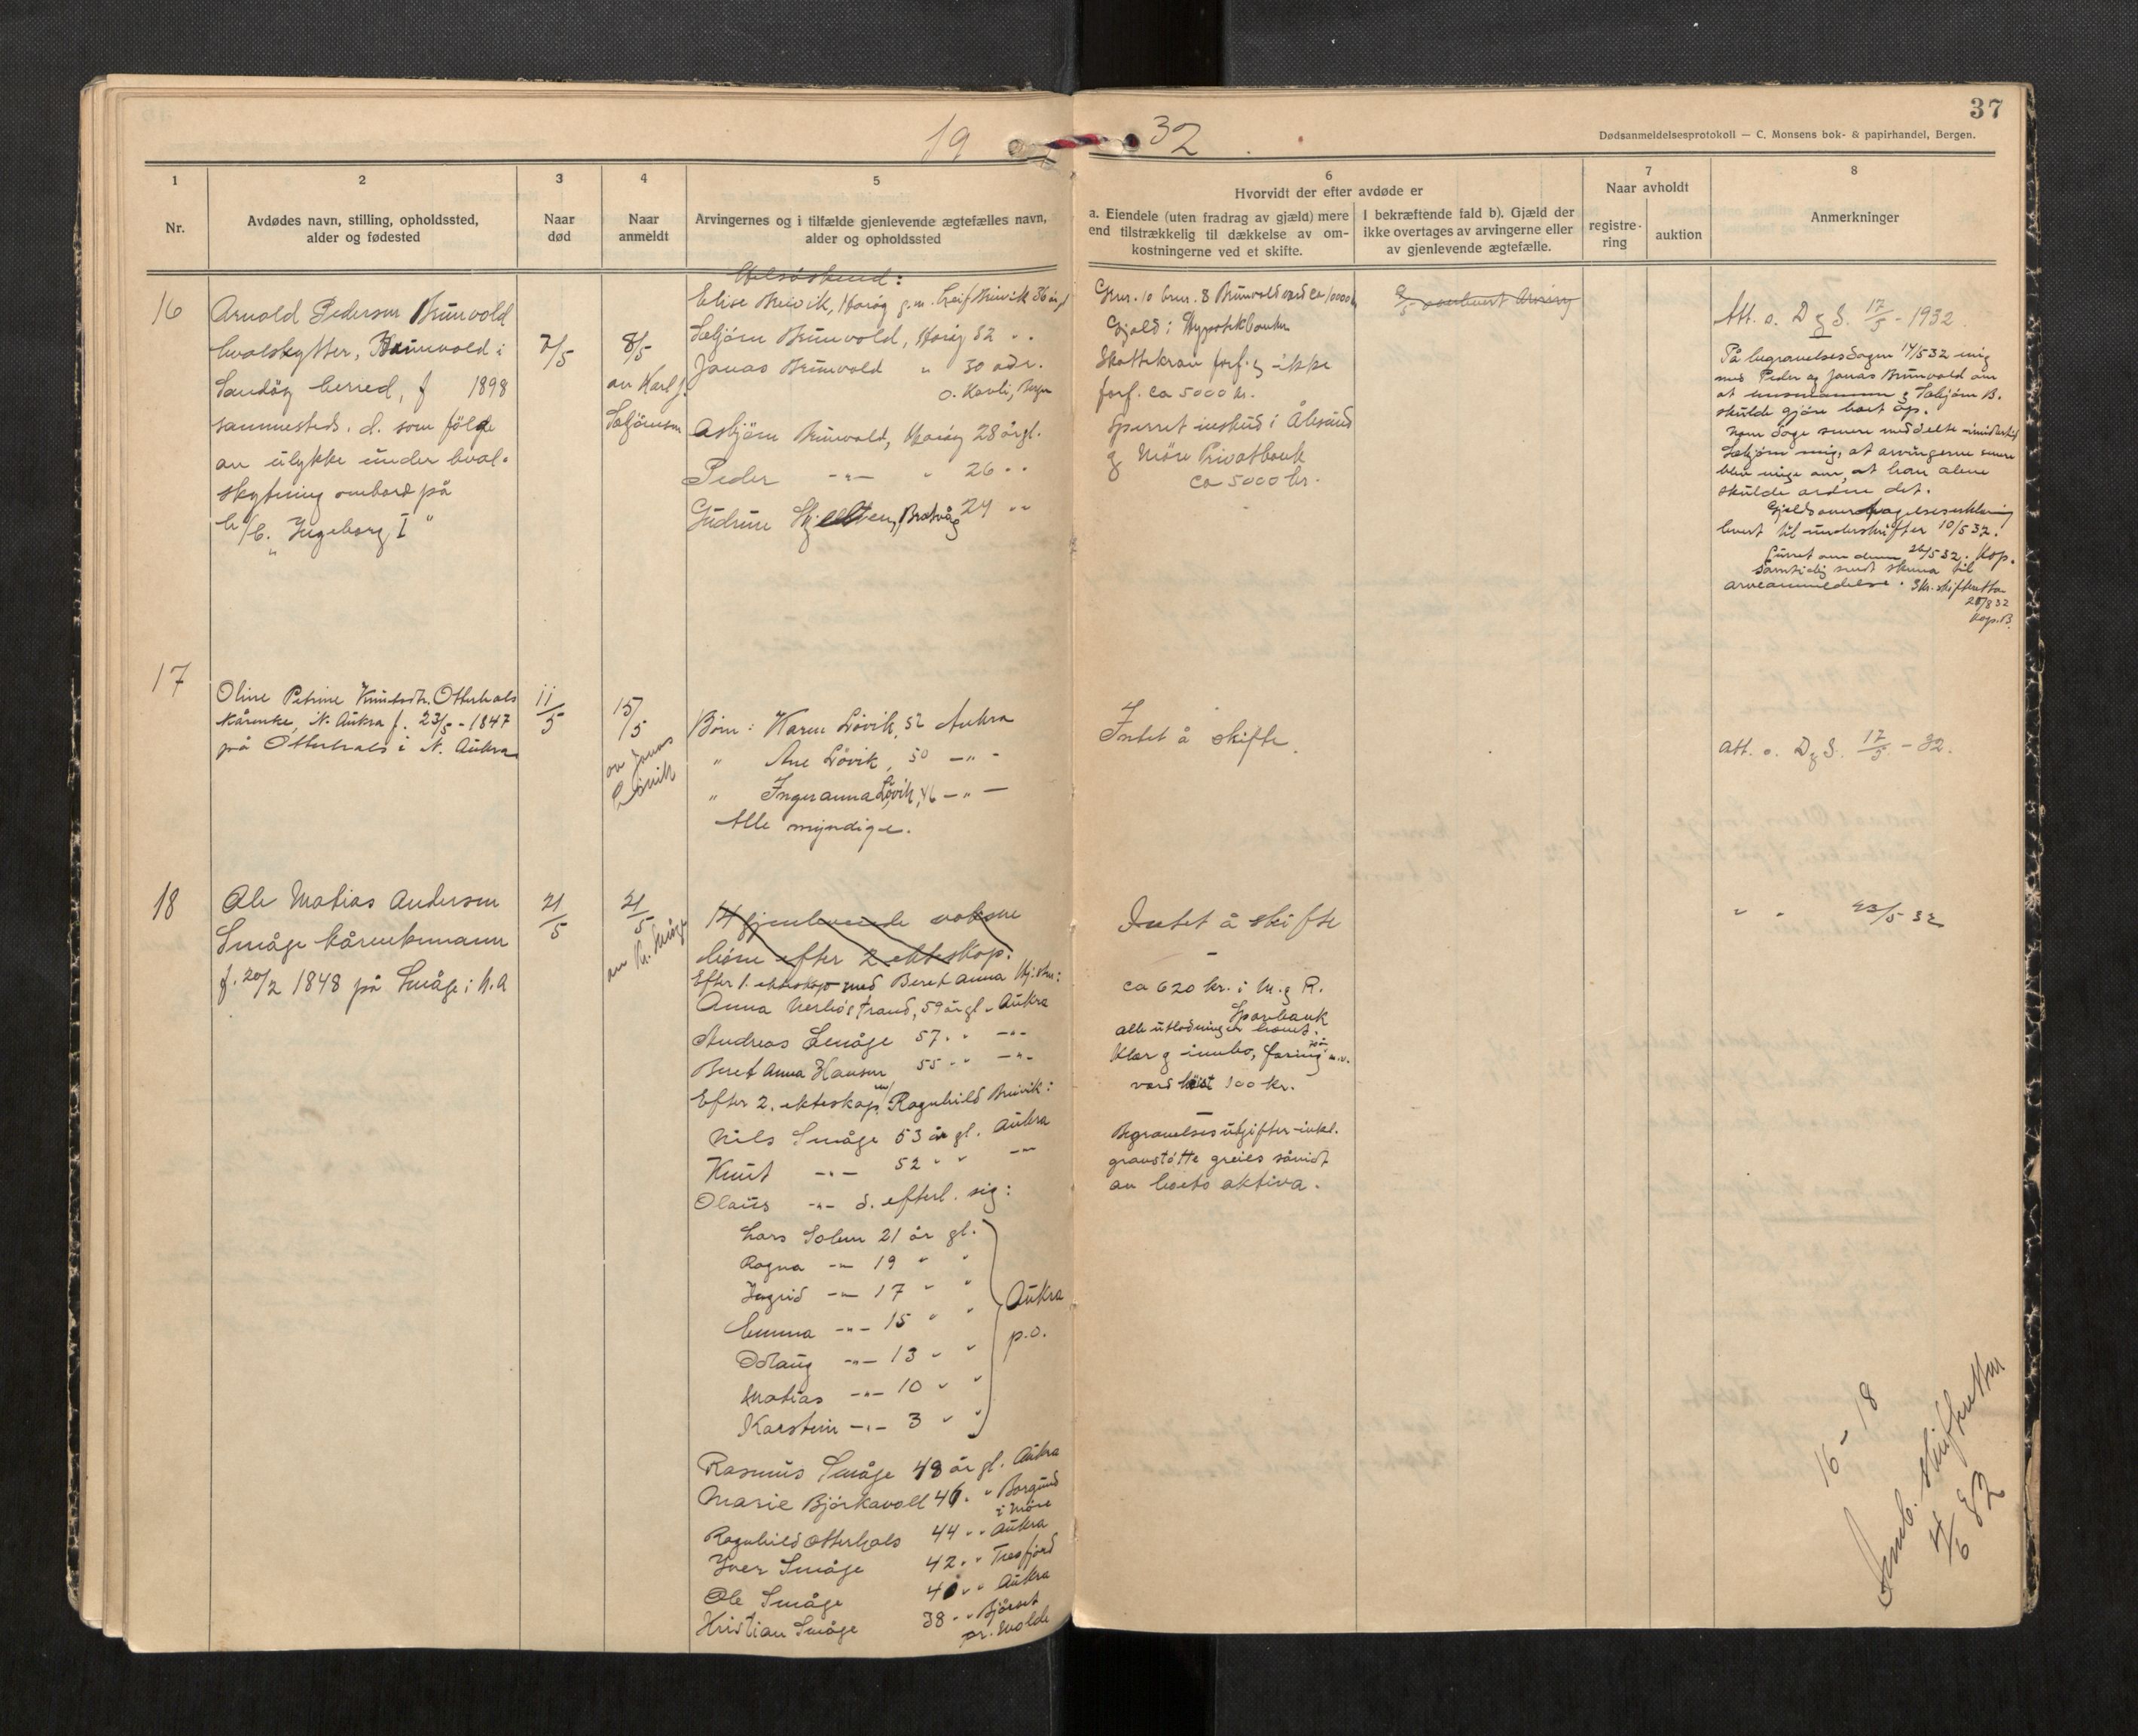 19 32
37
Dødsanmeldelsesprotokoll — C. Monsens bok- & papirhandel, Bergen.
1
2
3
4
5
6
7
8
Nr.
Avdødes navn, stilling, opholdssted,
alder og fødested
Naar
død
Naar
anmeldt
Arvingernes og i tilfælde gjenlevende ægtefælles navn,
alder og opholdssted
Hvorvidt der efter avdøde er
a. Eiendele (uten fradrag av gjæld) mere
end tilstrækkelig til dækkelse av om-
kostningerne ved et skifte.
I bekræftende fald b). Gjæld der
ikke overtages av arvingerne eller
av gjenlevende ægtefælle.
Naar avholdt
registre-
ring
auktion
Anmerkninger
16
Arnold Pedersen Brunvold
hvalskytter, Brunvold i
Sandøy herred, f 1898
sammesteds. d. som følge
av ulykke under hval-
skytning ombord på
h/b. "Ingeborg I"
7/5
8/5
av Karl J.
Helsøskend:
Elise Breivik, Harøy g.m. Leif Breivik 36 år gl
Brunvold, Harøy 32 " "
Jonas Brunvold " 30 adr.
O. Kavli, Bergen
Asbjørn Brunvold, Harøy 28 år gl.
Peder -"- " 26 " "
Gudrun Hjellten, Bratvåg 24 " "
Gnr. 10 bnr. 8 Brunvold verd ca 10000
Gjeld i Hypotekbanken
Skattekrav forf. og ikke
forf. ca 5000 kr.
Sperret inskud i Ålesund
og Møre Privatbank
ca 5000 kr.
Att. o. D og S. 17/5 - 1932.
På begravelsesdagen 14/5 32 enig
med Peder og Jonas Brunvold om
at B.
skulde gjøre boet op.
Nogen dage senere meddelte imidlertid
mig, at arvingerne senere
blev enige om, at han alene
skulde ordne det.
Gjeldsovertagelseserklering
levert til underskrifter 10/5 32.
Purret om denne 26/5 32. Kop.
Samtidig sendt skema til
arveanmeldelse. Skr. skifteretten
20/8 32
Kop. B.
17
Oline Petrine Knutsdtr. Otterhals
kårenke, N. Aukra f. 23/5 - 1847
på Otterhals i N. Aukra
11/5
15/5
av Jonas
Løvik
Børn: Karen Løvik, 52 Aukra
" Ane Løvik, 50 -"-
" Ingeranna Løvik, 46 -"-
Alle myndige.
Intet å skifte.
Att. o. D og S. 17/5 - 32.
18
Ole Matias Andersen
Småge kårenkemann
f. 20/2 1848 på Småge i N.A
21/5
21/5
av K. Småge
14 gjenlevende voksne
børn efter 2 ekteskap:
Efter 1. ekteskap med Beret Anna
Anna Nerbøstrand, 59 år gl. Aukra
Andreas Småge 57 " " -"-
Beret Anna Hansen 55 " " -"-
Efter 2. ekteskap m/ Ragnhild Breivik:
Nils Småge 53 år gl. Aukra
Knut -"- 52 " " -"-
Olaus -"- d. efterl. sig:
Lars Solem 21 år gl.
Ragna -"- 19 " "
Ingrid -"- 17 " "
Emma -"- 15 " "
Odlaug -"- 13 " "
Matias -"- 10 " "
Karstein -"- 3 " "
Aukra
p.o.
Rasmus Småge 48 år gl. Aukra
Marie Bjørkavoll 46 " " Borgund
i Møre
Ragnhild Otterhals 44 " " Aukra
Iver Småge 42 " " Tresfjord
Ole Småge 40 " " Aukra
Kristian Småge 38 " " Bjørset
pr. Molde
Intet å skifte
-
ca 620 kr. i M. og R.
Sparebank
alle utlodninger
Klær og innbo, m.v.
verd høist 100 kr.
-
Begravelsesutgifter inkl.
gravstøtte greies såvidt
av boets aktiva.
" " 23/5 32
16 - 18
Anmb. skifteretten
4/6 32